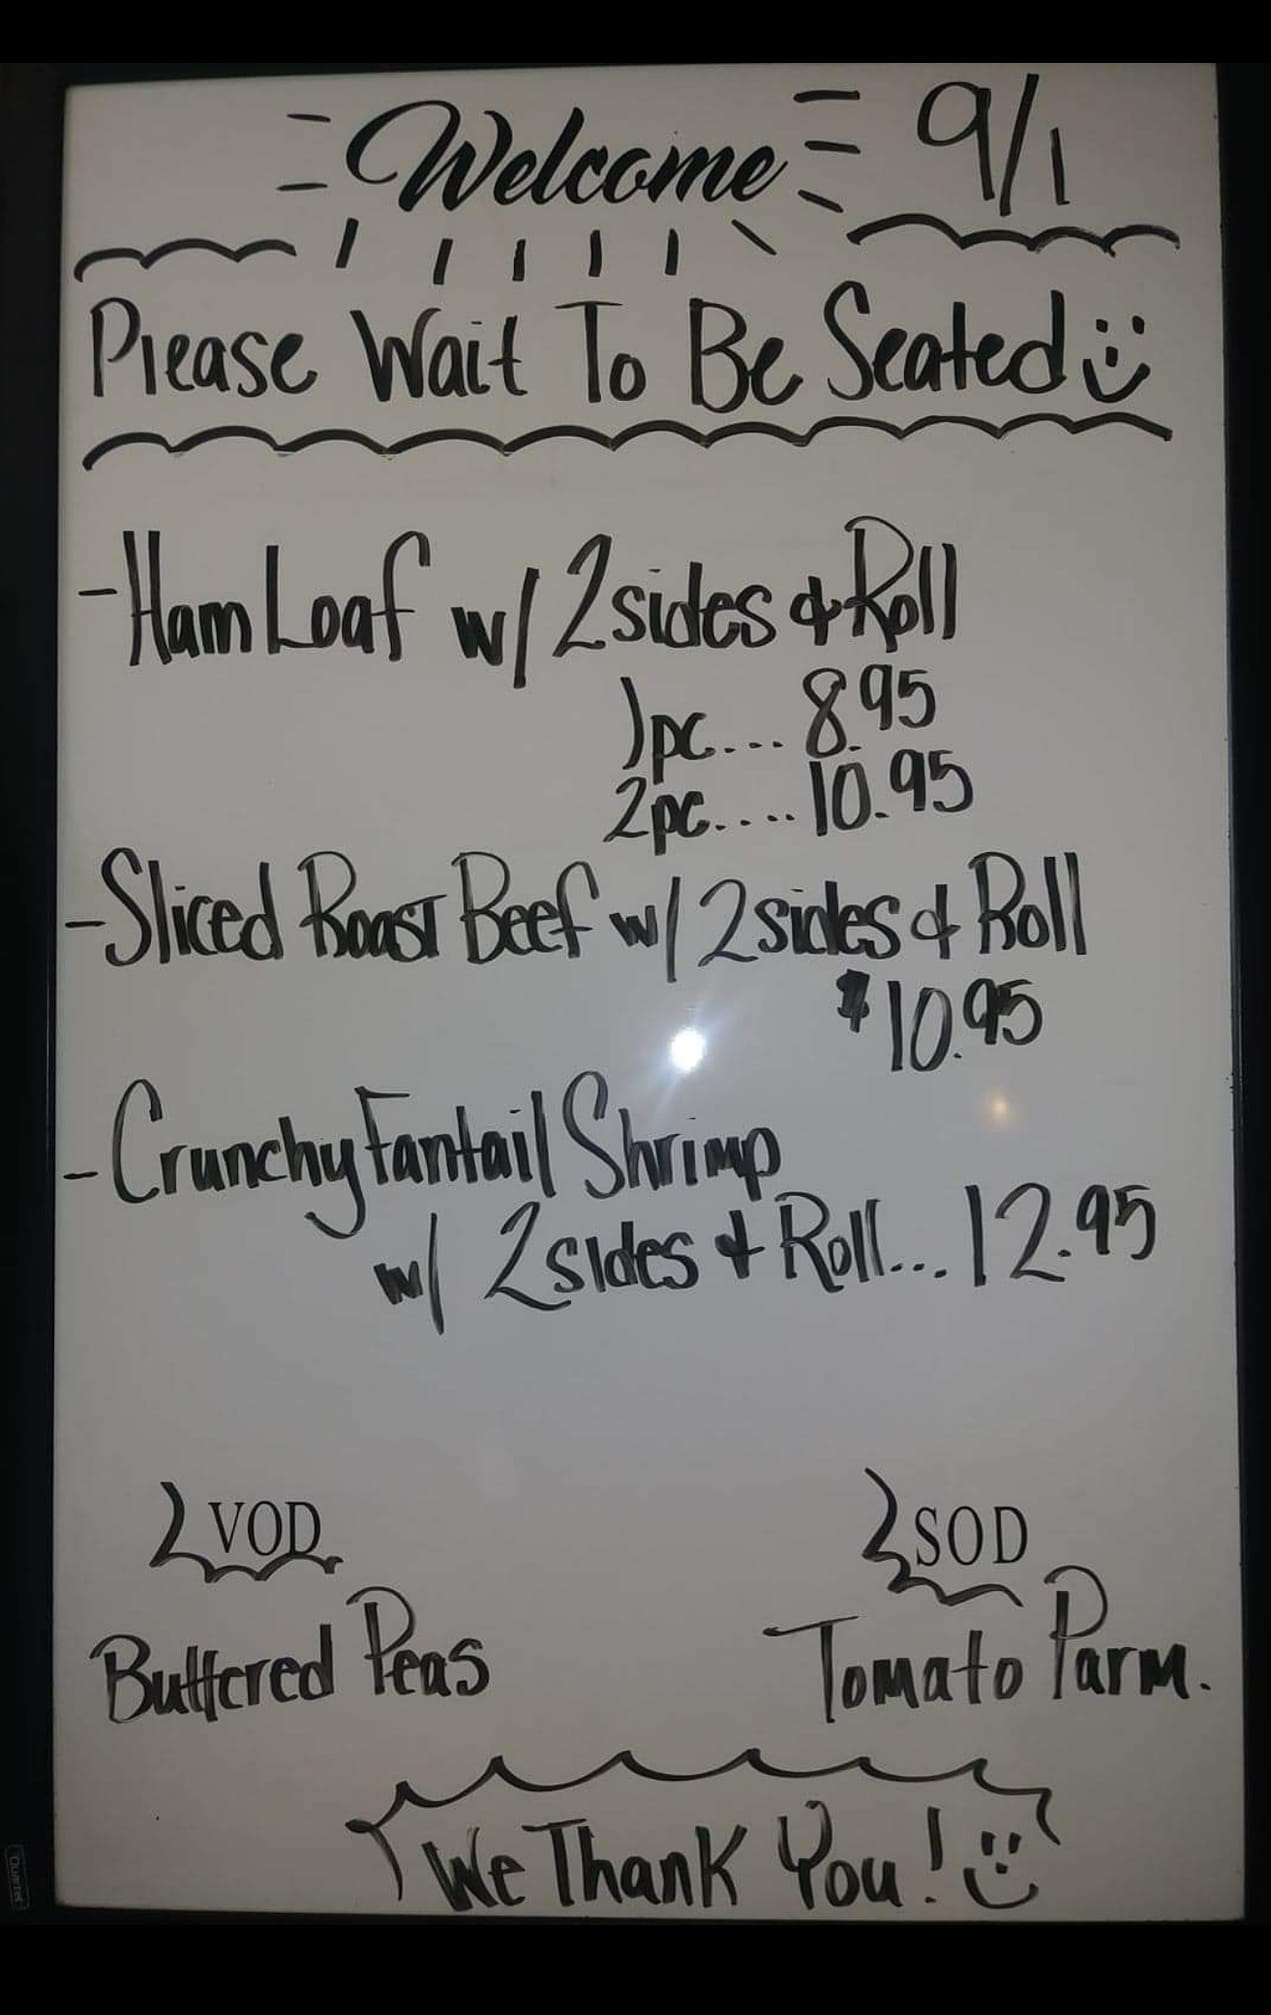 Welcome 9/1
Please Wait To Be Seated
- Ham Loaf w/ 2 sides & Roll
1pc.... 8.95
2pc..... 10.95
- Sliced Roast Beef w/ 2 sides & Roll
$10.95
- Crunchy Fantail Shrimp
w/ 2 sides & Roll... 12.95
VOD
SOD
Buttered Peas
Tomato Parm.
We Thank You!
Quartet